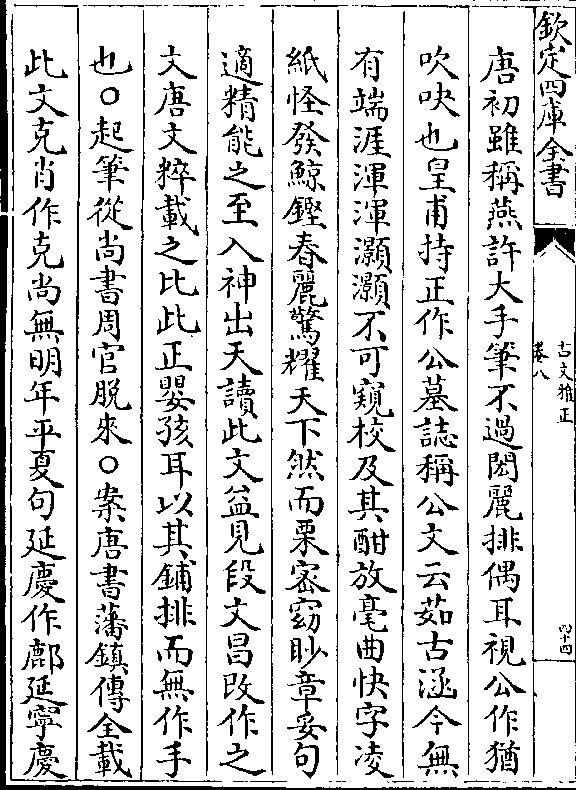 欽定四庫全書
古文雅正
卷八
四十四
唐初雖稱燕許大手筆不過閎麗排偶耳視公作猶
吹吷也皇甫持正作公墓誌稱公文云茹古涵今無
有端涯渾渾灝灝不可窺校及其酣放毫曲快字凌
紙怪發鯨鏗春麗驚耀天下然而栗密窈眇章妥句
適精能之至入神出天讀此文益見段文昌改作之
文唐文粹載之比此正嬰孩耳以其鋪排而無作手
也○起筆從尚書周官脱來○案唐書藩鎮傳全載
此文克肖作克尚無明年平夏句延慶作鄜延寧慶